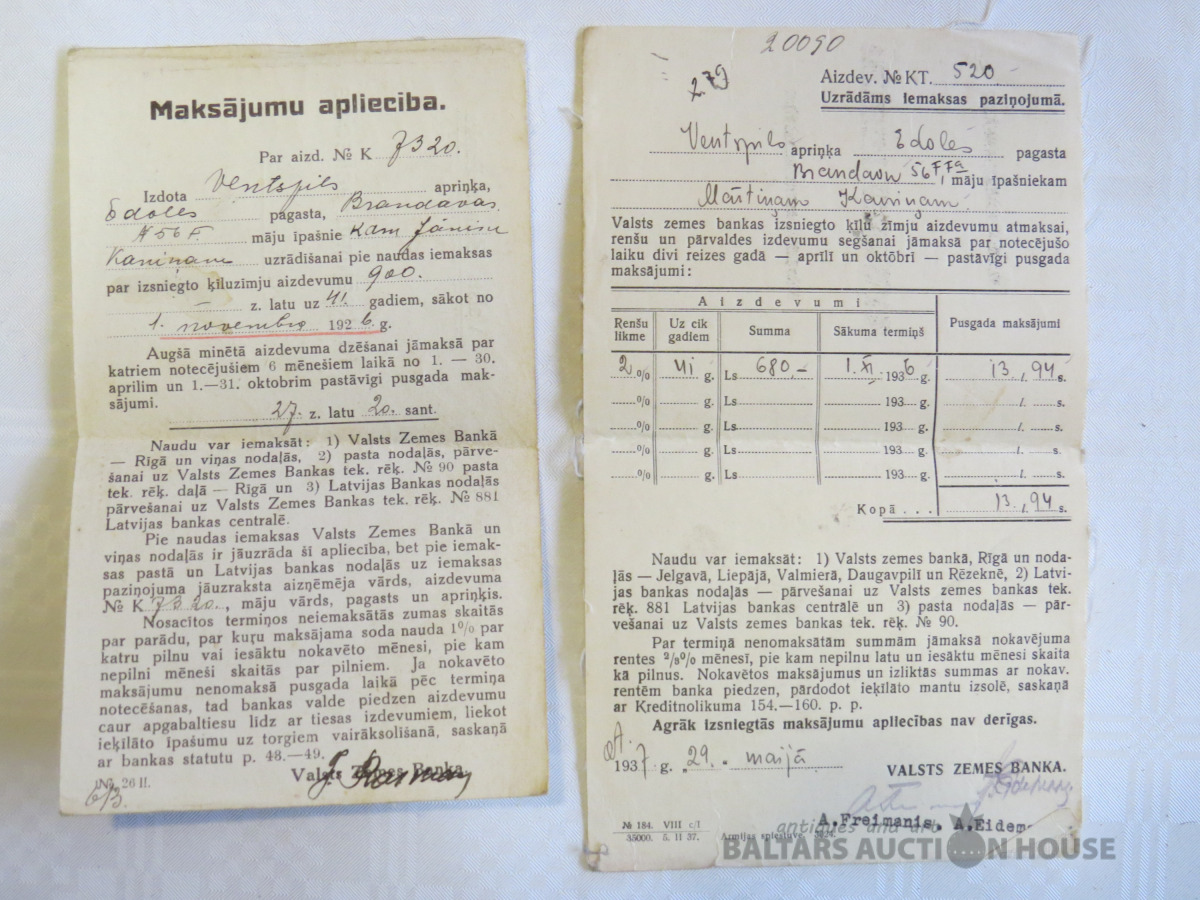 Maksājumu apliecība.
Par aizd. № K 7320.
Izdota Ventspils apriņķa,
Edoles pagasta, Brandavas
№ 56 F. māju īpašniekam Jānim
Kaniņam uzrādīšanai pie naudas iemaksas
par izsniegto ķīluzīmju aizdevumu 900.
— z. latu uz 41. gadiem, sākot no
1. novembra 1926. g.
Augšā minētā aizdevuma dzēšanai jāmaksā par
katriem notecējušiem 6 mēnešiem laikā no 1. — 30.
aprilim un 1.—31. oktobrim pastāvīgi pusgada mak-
sājumi.
27. z. latu 20. sant.
Naudu var iemaksāt: 1) Valsts Zemes Bankā
— Rīgā un viņas nodaļās, 2) pasta nodaļās, pārve-
šanai uz Valsts Zemes Bankas tek. rēķ. № 90 pasta
tek. rēķ. daļā — Rīgā un 3) Latvijas Bankas nodaļās
pārvešanai uz Valsts Zemes Bankas tek. rēķ. № 881
Latvijas bankas centralē.
Pie naudas iemaksas Valsts Zemes Bankā un
viņas nodaļās ir jāuzrāda šī apliecība, bet pie iemak-
sas pastā un Latvijas bankas nodaļās uz iemaksas
paziņojuma jāuzraksta aizņēmēja vārds, aizdevuma
№ K 7320., māju vārds, pagasts un apriņķis.
Nosacītos termiņos neiemaksātās zumas skaitās
par parādu, par kuŗu maksājama soda nauda 1% par
katru pilnu vai iesāktu nokavēto mēnesi, pie kam
nepilni mēneši skaitās par pilniem. Ja nokavēto
maksājumu nenomaksā pusgada laikā pēc termiņa
notecēšanas, tad bankas valde piedzen aizdevumu
caur apgabaltiesu līdz ar tiesas izdevumiem, liekot
ieķīlāto īpašumu uz torgiem vairāksolīšanā, saskaņā
ar bankas statutu p. 48.—49.
Valsts Zemes Banka
№ 26 II.
20090
279
Aizdev. № KT. 520
Uzrādāms iemaksas paziņojumā.
Ventspils apriņķa Edoles pagasta
56 F, Fa māju īpašniekam
Mārtiņam Kaniņam
Valsts zemes bankas izsniegto ķīlu zīmju aizdevumu atmaksai,
renšu un pārvaldes izdevumu segšanai jāmaksā par notecējušo
laiku divi reizes gadā — aprīlī un oktōbrī — pastāvīgi pusgada
maksājumi:
Aizdevumi
Renšu likme Uz cik gadiem Summa Sākuma termiņš Pusgada maksājumi
2 % 41 g. Ls 680,— 1. XI 1936 g. 13,/.94 s.
% g. Ls 193 g. /. s.
% g. Ls 193 g. /. s.
% g. Ls 193 g. /. s.
% g. Ls 193 g. /. s.
Kopā . . . 13./.94 s.
Naudu var iemaksāt: 1) Valsts zemes bankā, Rīgā un noda-
ļās — Jelgavā, Liepājā, Valmierā, Daugavpilī un Rēzeknē, 2) Latvi-
jas bankas nodaļās — pārvešanai uz Valsts zemes bankas tek.
rēķ. 881 Latvijas bankas centrālē un 3) pasta nodaļās — pār-
vešanai uz Valsts zemes bankas tek. rēķ. № 90.
Par termiņā nenomaksātām summām jāmaksā nokavējuma
rentes ²/₃% mēnesī, pie kam nepilnu latu un iesāktu mēnesi skaita
kā pilnus. Nokavētos maksājumus un izliktās summas ar nokav.
rentēm banka piedzen, pārdodot ieķīlāto mantu izsolē, saskaņā
ar Kreditnolikuma 154.—160. p. p.
Agrāk izsniegtās maksājumu apliecības nav derīgas.
1937. g. „29.“ maijā VALSTS ZEMES BANKA.
A.Freimanis. A.Eidem
№ 184. VIII c/l
35000. 5. II 37. Armijas spiestuve.
antiques and art
BALTARS AUCTION HOUSE